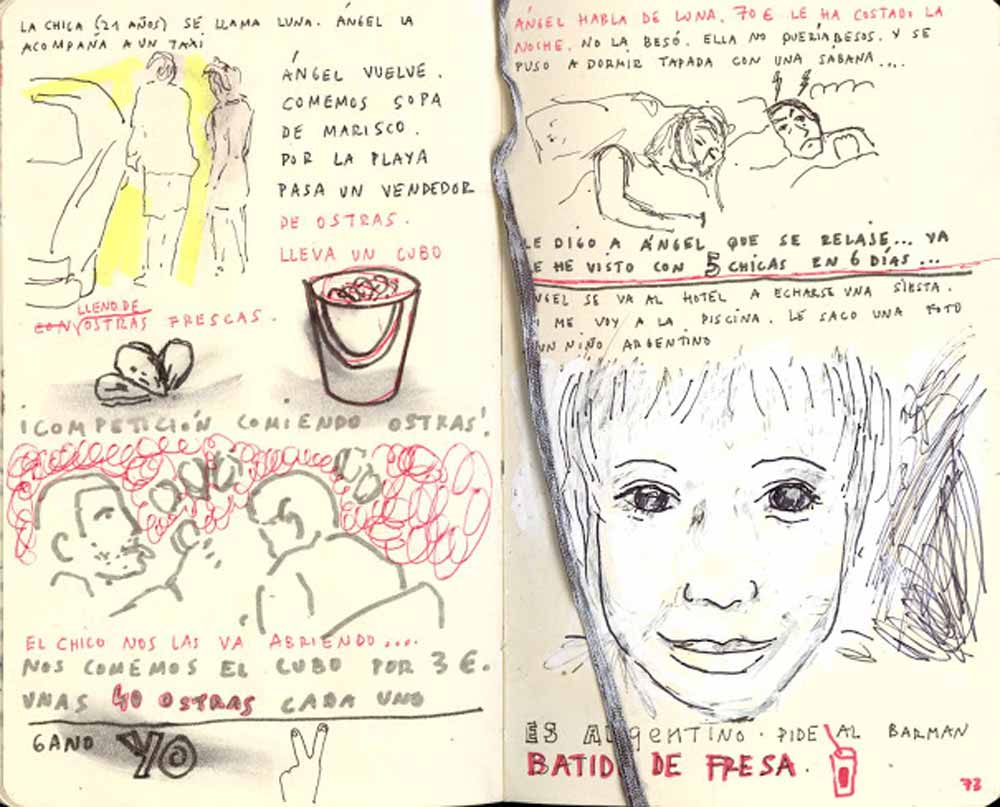 LA CHICA (21 AÑOS) SE LLAMA LUNA. ÁNGEL LA
ACOMPAÑA A UN TAXI
ÁNGEL VUELVE.
COMEMOS SOPA
DE MARISCO.
POR LA PLAYA
PASA UN VENDEDOR
DE OSTRAS.
LLEVA UN CUBO
LLENO DE
CON OSTRAS FRESCAS.
¡COMPETICIÓN COMIENDO OSTRAS!
EL CHICO NOS LAS VA ABRIENDO....
NOS COMEMOS EL CUBO POR 3 €.
UNAS 40 OSTRAS CADA UNO
GANO YO
ÁNGEL HABLA DE LUNA. 70 € LE HA COSTADO LA
NOCHE. NO LA BESÓ. ELLA NO QUERÍA BESOS. Y SE
PUSO A DORMIR TAPADA CON UNA SÁBANA....
LE DIGO A ÁNGEL QUE SE RELAJE... YA
LE HE VISTO CON 5 CHICAS EN 6 DÍAS...
NGEL SE VA AL HOTEL A ECHARSE UNA SIESTA.
ME VOY A LA PISCINA. LE SACO UNA FOTO
UN NIÑO ARGENTINO
ES ARGENTINO. PIDE AL BARMAN
BATIDO DE FRESA.
73